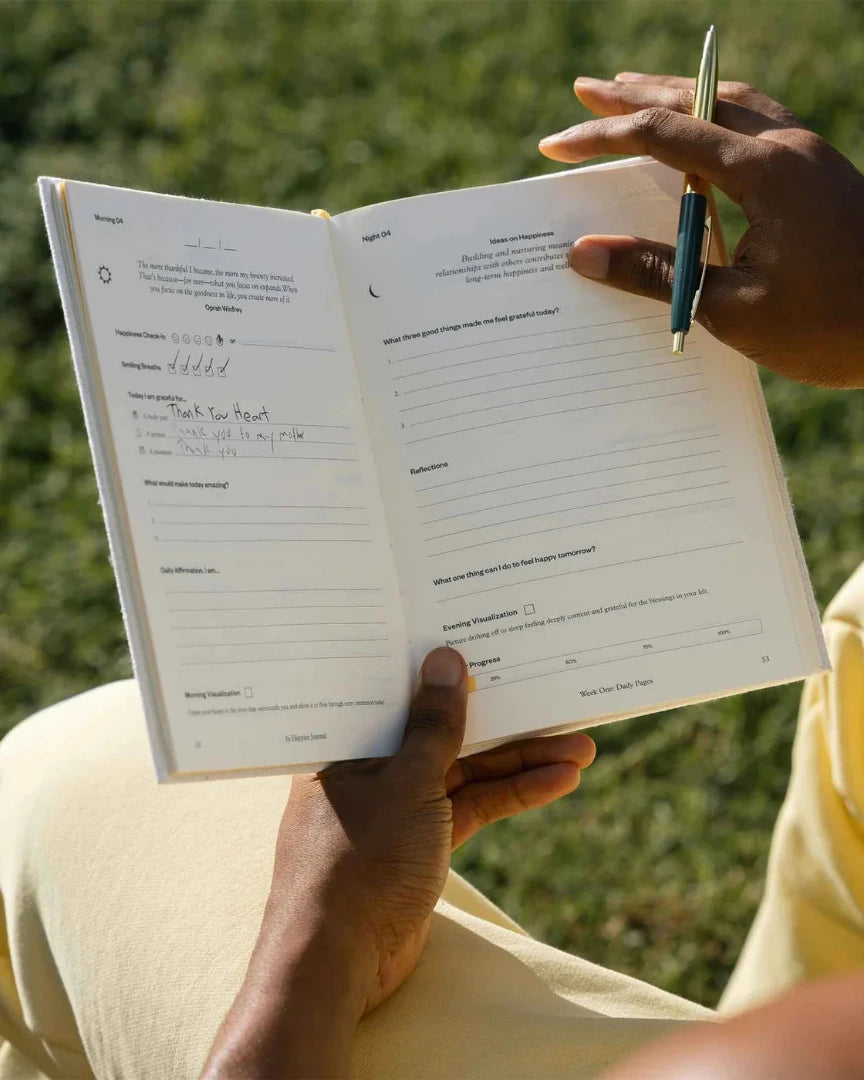 Morning 04
_|_|_
The more thankful I became, the more my bounty increased.
That's because—for sure—what you focus on expands. When
you focus on the goodness in life, you create more of it.
Oprah Winfrey
Happiness Check-In or
Smiling Breaths
Today I am grateful for...
A body part Thank You Heart
A person Thank you to my mother
A moment Thank you
What would make today amazing?
1.
2.
3.
Daily Affirmation, I am...
Morning Visualization
your heart to the love that surrounds you and allow it to flow through every interaction today.
Happier Journal
Night 04
Ideas on Happiness
Building and nurturing
relationships with others contributes
long-term happiness and
What three good things made me feel grateful today?
1.
2.
3.
Reflections
What one thing can I do to feel happy tomorrow?
Evening Visualization
Picture drifting off to sleep feeling deeply content and grateful for the blessings in your life.
Progress
25% 50% 75% 100%
Week One: Daily Pages
53